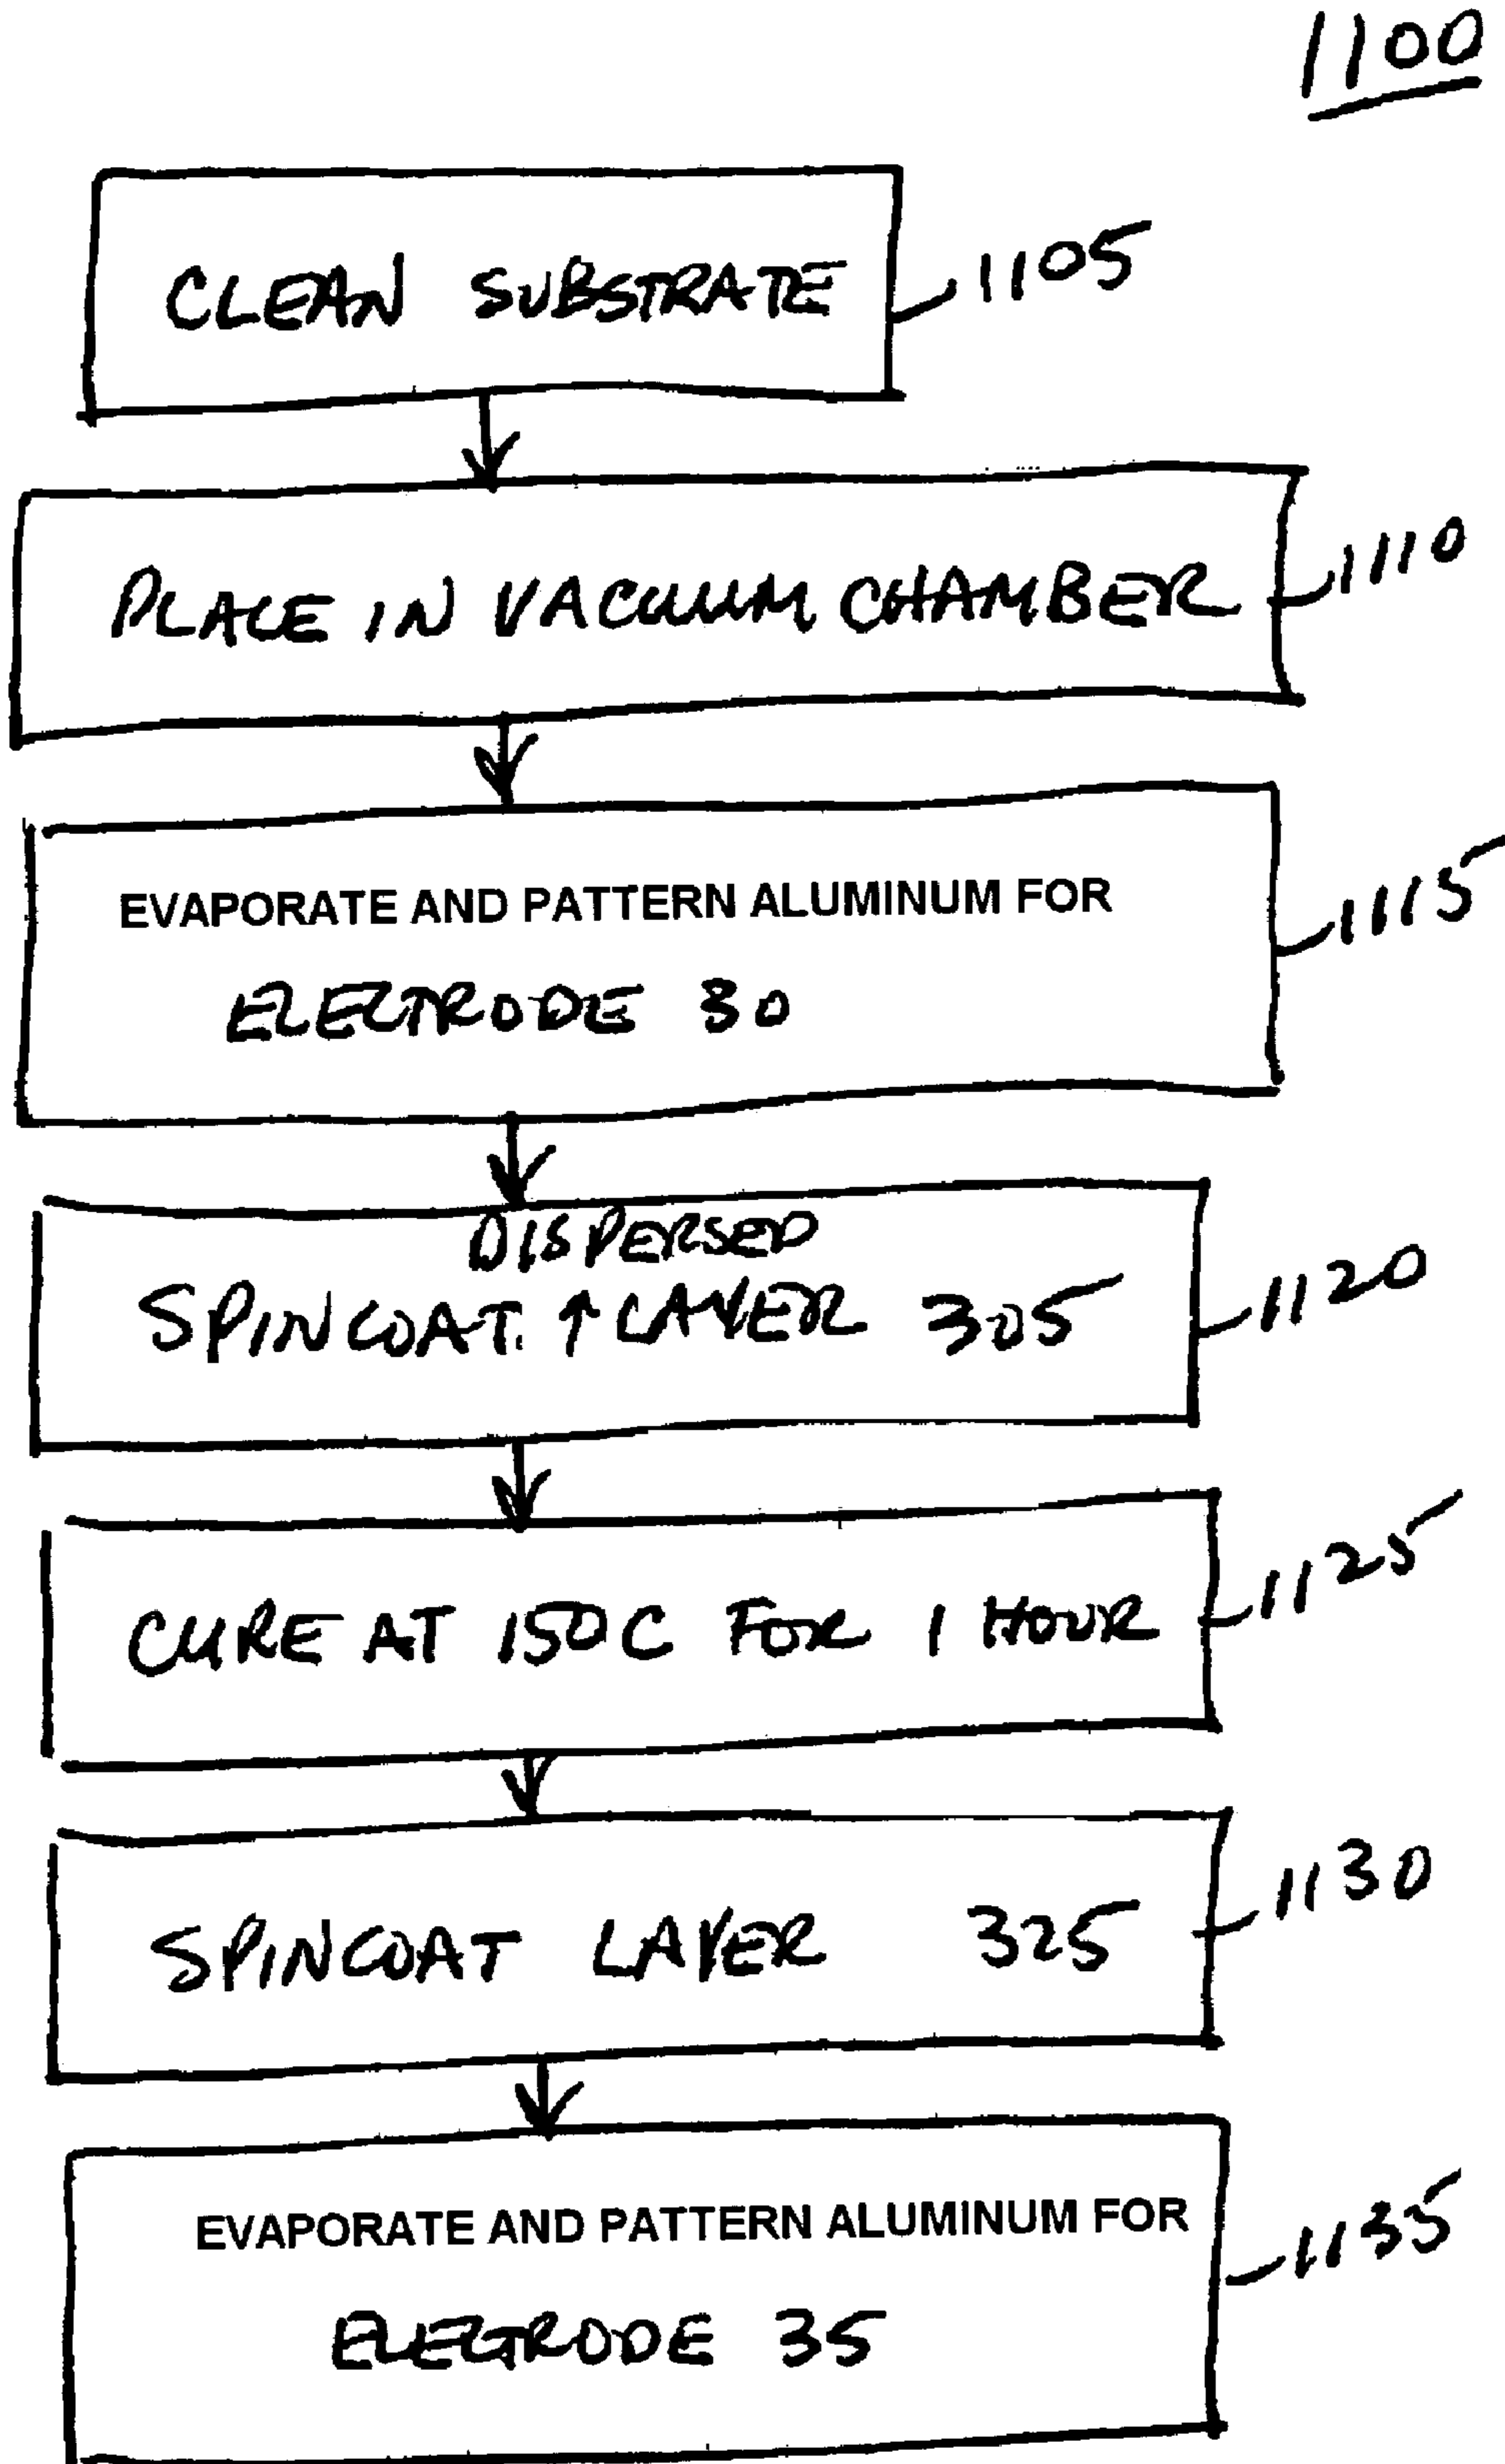 1100
CLEAN SUBSTRATE 1105
PLACE IN VACUUM CHAMBER 1110
EVAPORATE AND PATTERN ALUMINUM FOR 1115
ELECTRODE 30
DISPERSED
SPINCOAT ↑ LAYER 305 1120
CURE AT 150C FOR 1 HOUR 1125
SPINCOAT LAYER 325 1130
EVAPORATE AND PATTERN ALUMINUM FOR 1135
ELECTRODE 35